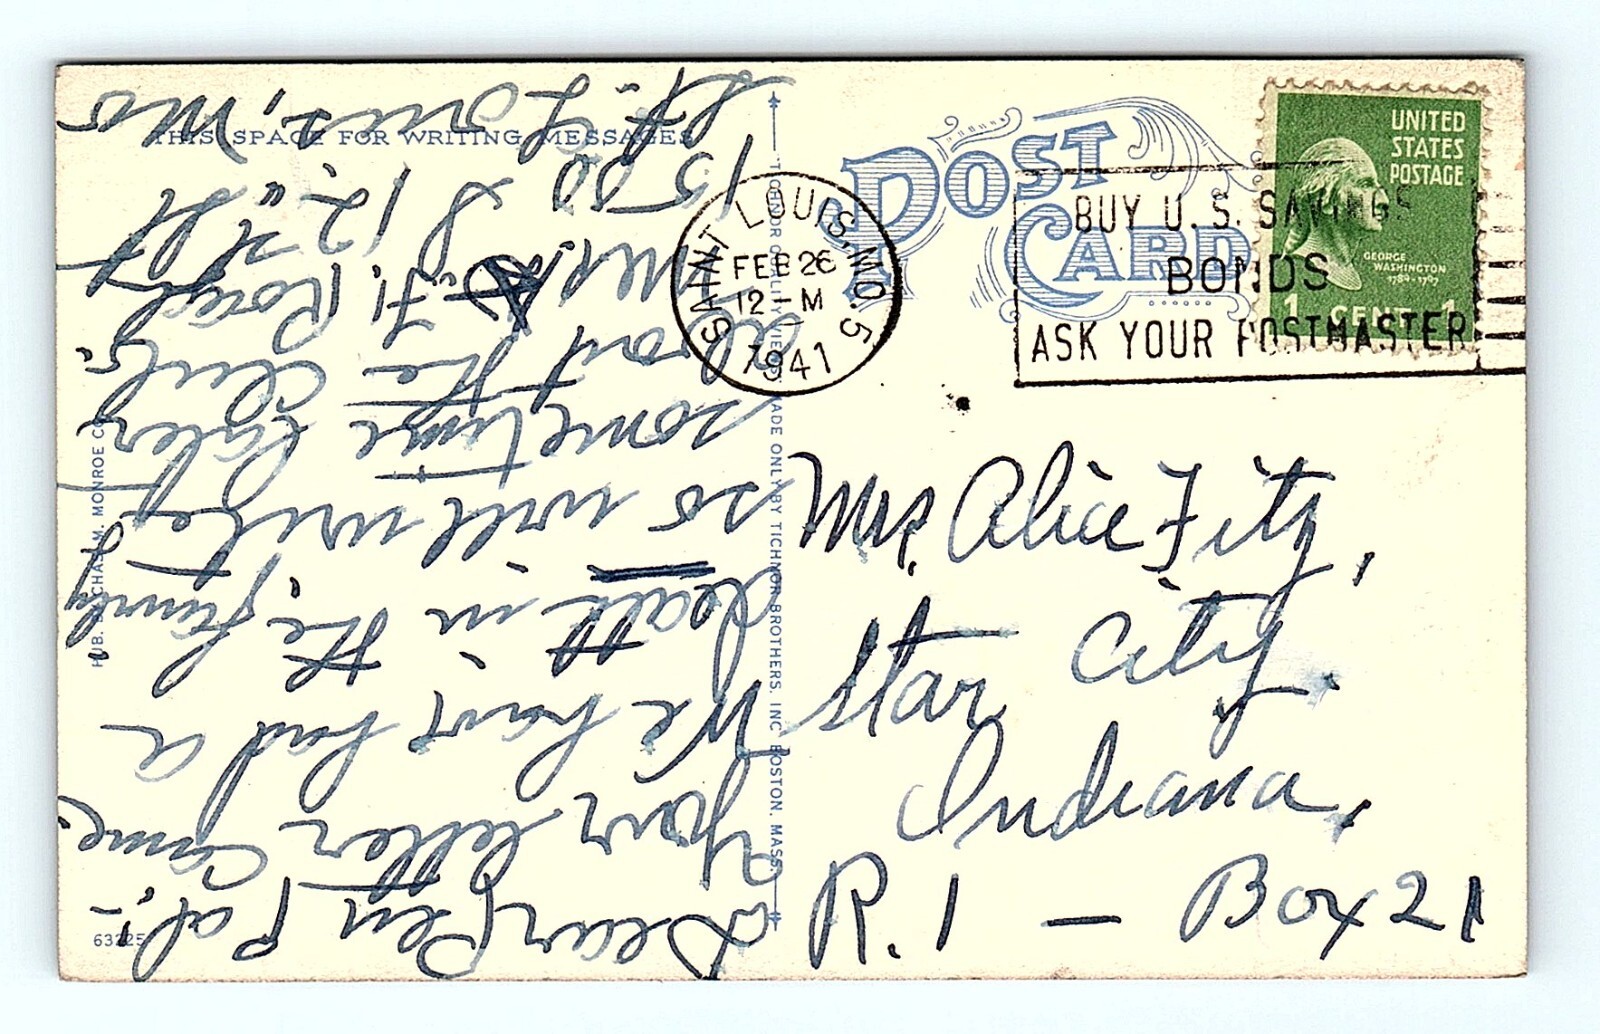 THIS SPACE FOR WRITING MESSAGES
POST CARD
SAINT LOUIS, MO. 5
FEB 26
12 - M
1941
BUY U. S. SAVINGS
BONDS
ASK YOUR POSTMASTER
UNITED
STATES
POSTAGE
GEORGE
WASHINGTON
1789-1797
1 CENT 1
Dear Pen Pal,-
Your letter came.
We have had a
death in the family
so will write
sometime later
about the club.
Mrs.
1500 S 12" St
St. Louis, Mo
Mrs. Alice Fitz,
Star City,
Indiana,
R. 1 - Box 21
CHAS. M. MONROE CO.
MADE ONLY BY TICHNOR BROTHERS, INC. BOSTON, MASS.